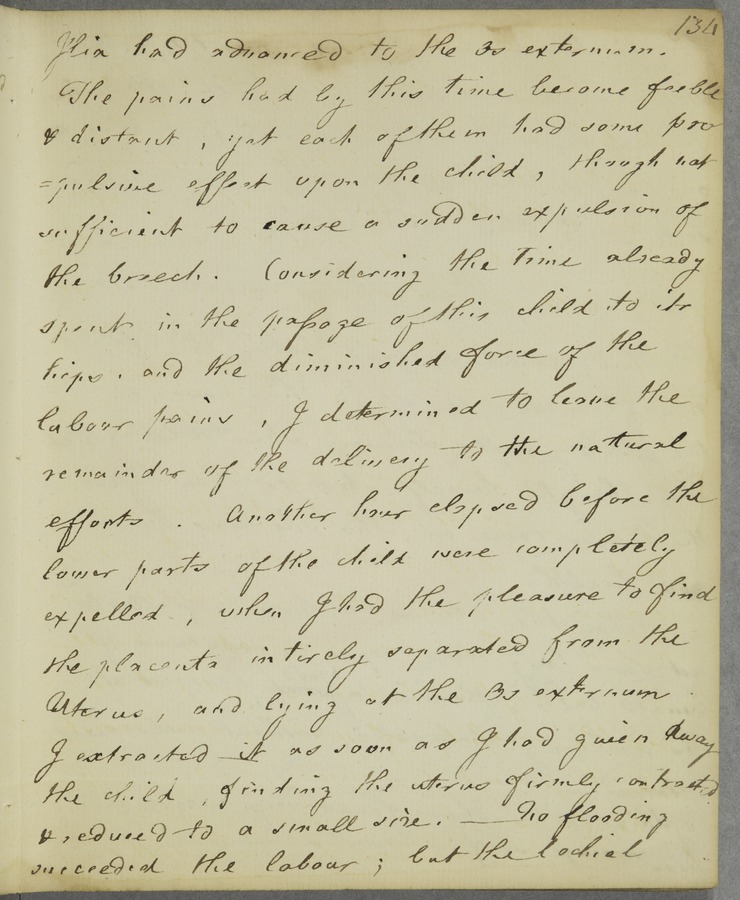 134
Ilia had advanced to the Os externum.
The pains had by this time become feeble
& distant, yet each of them had some pro
=pulsive effect upon the child, though not
sufficient to cause a sudden expulsion of
the breech. Considering the time already
spent in the passage of this child to its
hips, and the diminished force of the
labour pains, I determined to leave the
remainder of the delivery to the natural
efforts. Another hour elapsed before the
lower parts of the child were completely
expelled, when I had the pleasure to find
the placenta intirely separated from the
Uterus, and lying at the Os externum.
I extracted it as soon as I had given away
the child, finding the uterus firmly contracted
& reduced to a small size. — No flooding
succeeded the labour; but the lochial